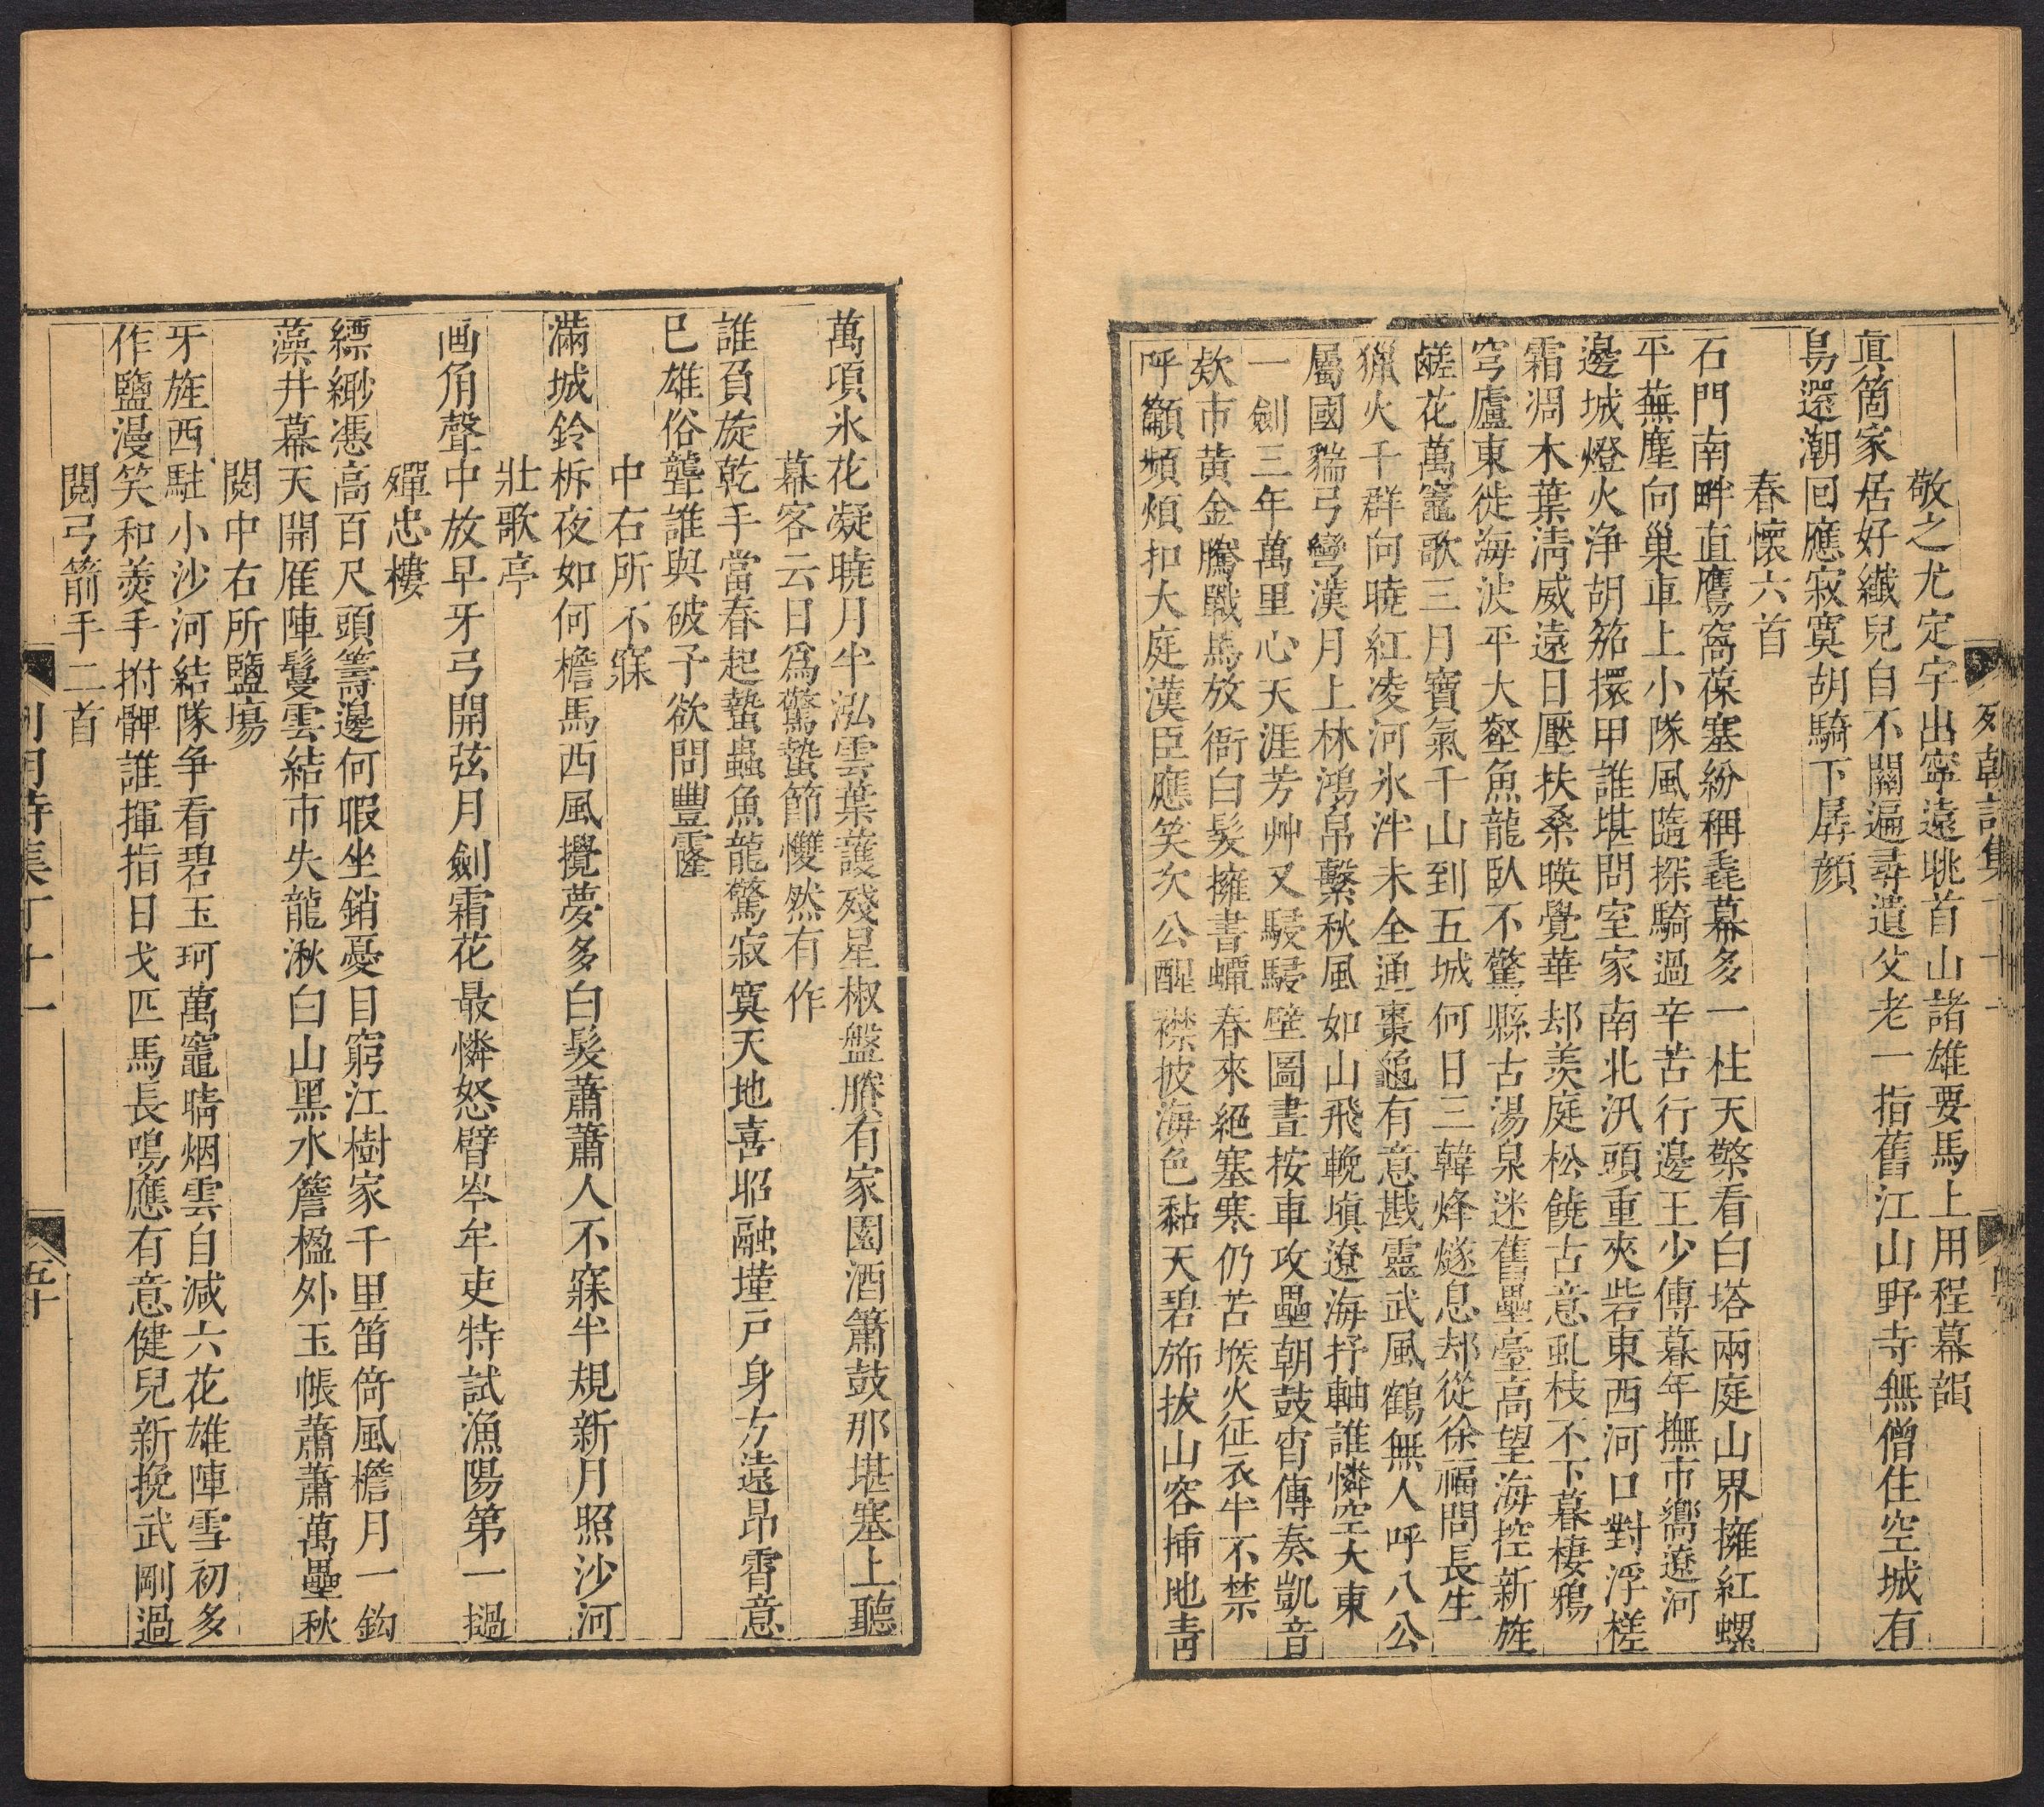 敬之尤定宇出寧遠眺首山諸雄要馬上用程幕韻
真箇家居好纖兒自不關遍尋遺父老一指舊江山野寺無僧住空城有
鳥還潮囘應寂寞胡騎下孱顔
春懷六首
石門南畔直鷹窩葆塞紛稠毳幕多一柱天檠看白塔兩庭山界擁紅螺
平蕪塵向巢車上小隊風隨探騎過辛苦行邊王少傅暮年撫市嚮遼河
邊城燈火浄胡笳擐甲誰堪問室家南北汛頭重夾砦東西河口對浮槎
霜凋木葉淸威遠日壓扶桑暎覺華却羡庭松饒古意虬枝不下暮棲鴉
穹廬東徙海波平大壑魚龍臥不驚縣古湯泉迷舊壘臺高望海控新旌
鹺花萬竈歌三月寶氣千山到五城何日三韓烽燧息却從徐福問長生
獵火千群向曉紅凌河氷泮未全通棗龜有意戡靈武風鶴無人呼八公
屬國貒弓彎漢月上林鴻帛繫秋風如山飛輓塡遼海抒軸誰憐空大東
一劍三年萬里心天涯芳艸又駸駸壁圖晝按車攻壘朝鼓宵傳奏凱音
欸市黄金騰戰馬放衙白髮擁書蟫春來絕塞寒仍苦堠火征衣半不禁
呼籲頻煩扣大庭漢臣應笑次公醒襟披海色黏天碧斾拔山容揷地靑
萬項氷花凝曉月半泓雲葉護殘星椒盤賸有家園酒簫鼓那堪塞上聽
幕客云日爲驚蟄節戄然有作
誰負旋乾手當春起蟄蟲魚龍驚寂寞天地喜昭融墐戸身方遠昂霄意
巳雄俗聾誰與破予欲問豐霳
中右所不寐
滿城鈴柝夜如何檐馬西風攪夢多白髮蕭蕭人不寐半規新月照沙河
壯歌亭
画角聲中放早牙弓開弦月劍霜花最憐怒臂岑牟吏特試漁陽第一撾
殫忠樓
縹緲憑高百尺頭籌邊何暇坐銷憂目窮江樹家千里笛倚風檐月一鈎
藻井幕天開雁陣鬘雲結市失龍湫白山黑水簷楹外玉帳蕭蕭萬壘秋
閱中右所鹽塲
牙旌西駐小沙河結隊争看碧玉珂萬竈晴烟雲自減六花雄陣雪初多
作鹽漫笑和羹手拊髀誰揮指日戈匹馬長鳴應有意健兒新挽武剛過
閱弓箭手二首
列朝詩集丁十一
五十